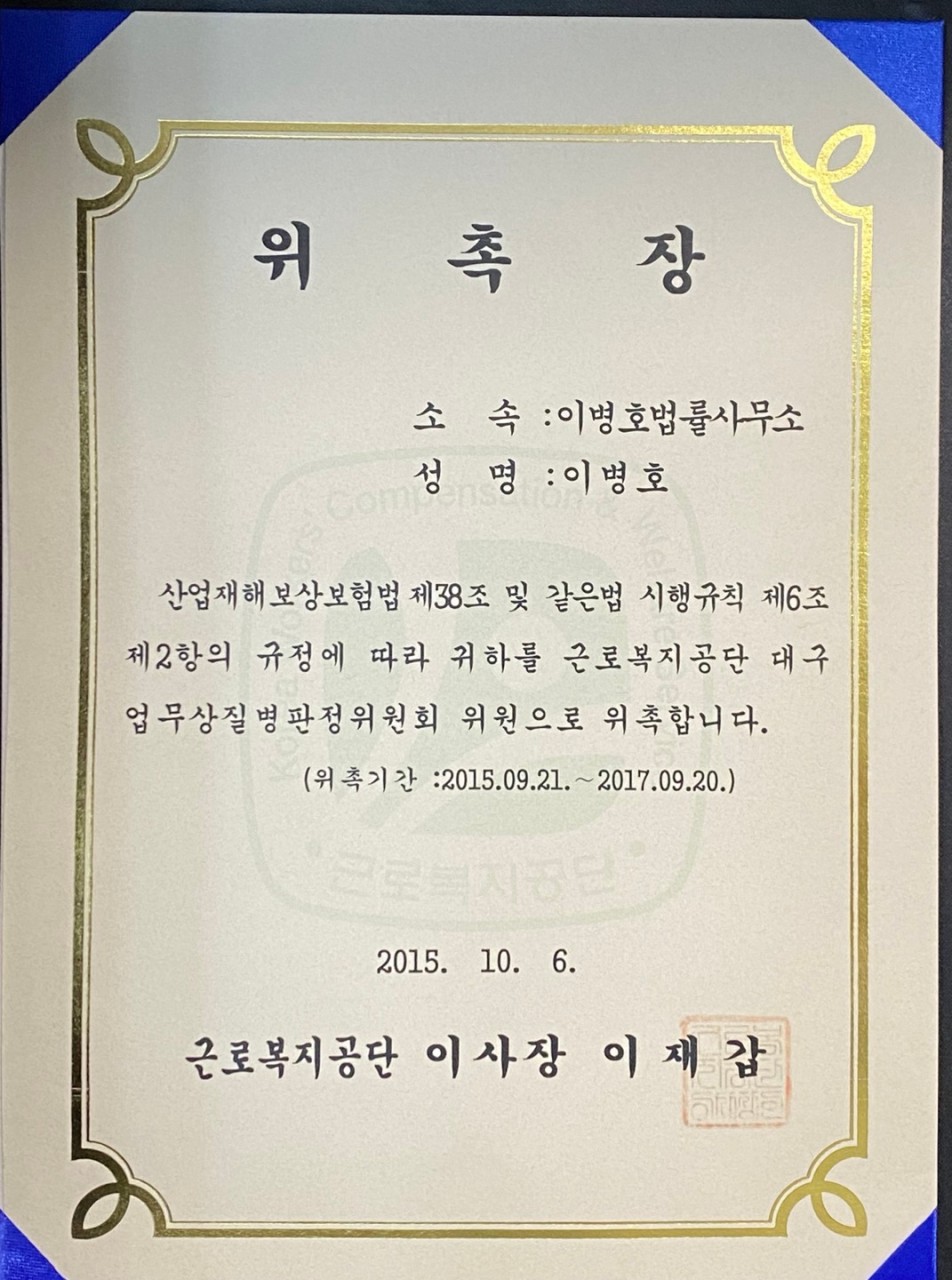 위 촉 장
소 속 :이병호법률사무소
성 명 :이병호
산업재해보상보험법 제38조 및 같은법 시행규칙 제6조
제2항의 규정에 따라 귀하를 근로복지공단 대구
업무상질병판정위원회 위원으로 위촉합니다.
(위촉기간 :2015.09.21.~2017.09.20.)
Korea Workers' Compensation & Welfare
근로복지공단
2015. 10. 6.
근로복지공단 이사장 이 재 갑